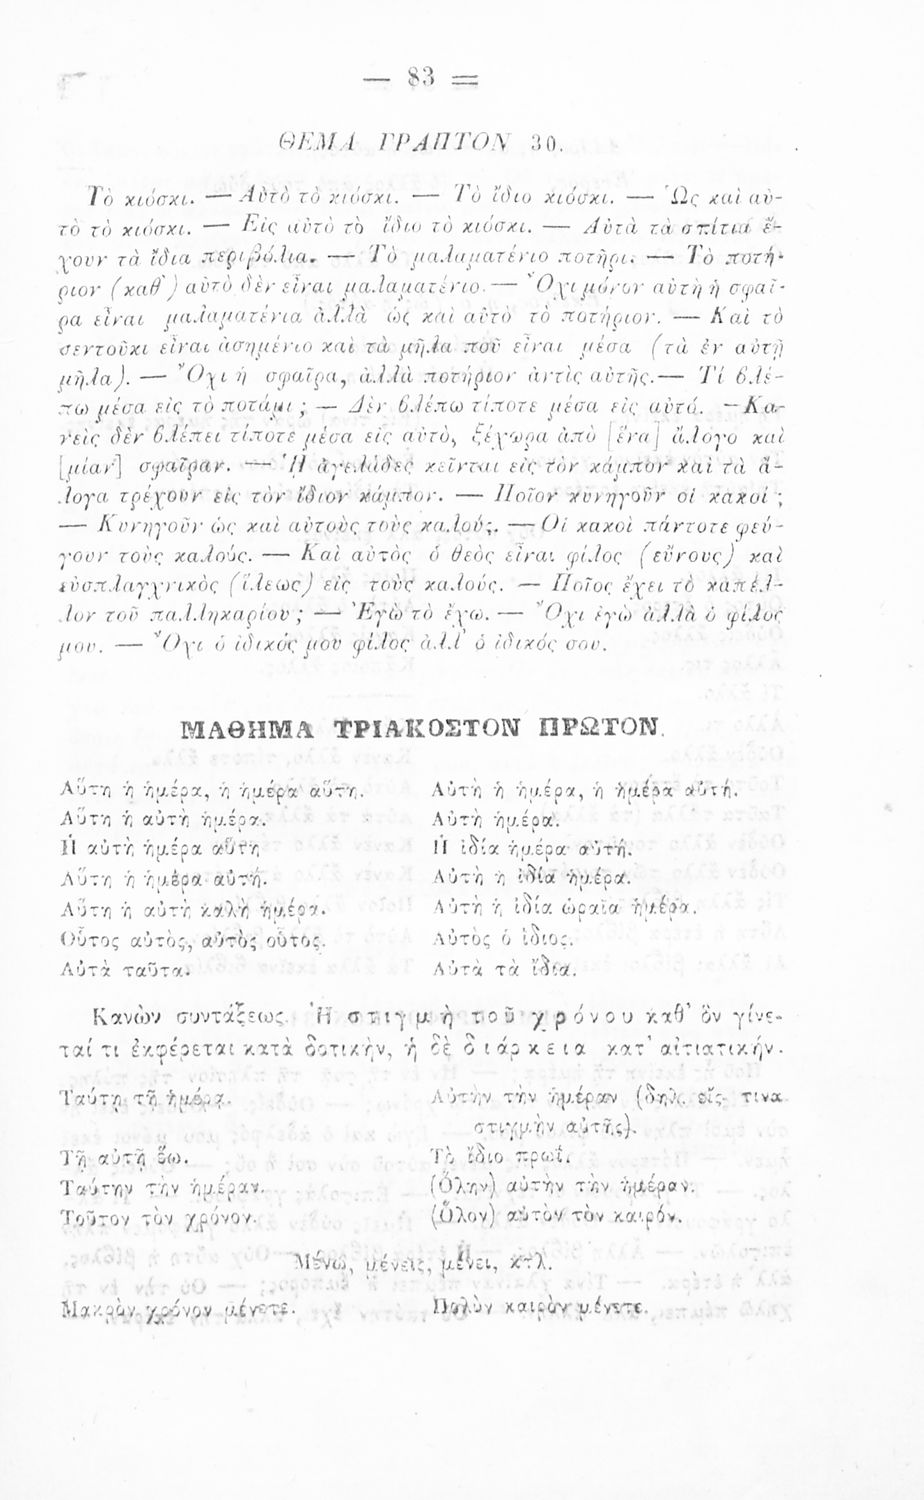 — 83 —
ΘΕΜΑ ΓΡΑΠΤΟΝ 30.
Τὸ κιόσκι. — Αὐτὸ τὸ κιόσκι. — Τὸ ἴδιο κιόσκι. — Ὡς καὶ αὐ-
τὸ τὸ κιόσκι. — Εἰς αὐτὸ τὸ ἴδιο τὸ κιόσκι. — Αὐτὰ τὰ σπίτια ἔ-
χουν τὰ ἴδια περιβόλια. — Τὸ μαλαματένιο ποτῆρι. — Τὸ ποτή-
ριον (καθ') αὐτὸ δὲν εἶναι μαλαματένιο. — Ὄχι μόνον αὐτὴ ἡ σφαῖ-
ρα εἶναι μαλαματένια ἀλλὰ ὡς καὶ αὐτὸ τὸ ποτήριον. — Καὶ τὸ
σεντοῦκι εἶναι ἀσημένιο καὶ τὰ μῆλα ποῦ εἶναι μέσα (τὰ ἐν αὐτῇ
μῆλα). — Ὄχι ἡ σφαῖρα, ἀλλὰ ποτήριον ἀντὶς αὐτῆς. — Τί βλέ-
πω μέσα εἰς τὸ ποτάμι; — Δὲν βλέπω τίποτε μέσα εἰς αὐτό. — Κα-
νεὶς δὲν βλέπει τίποτε μέσα εἰς αὐτὸ, ξέχωρα ἀπὸ [ἕνα] ἄλογο καὶ
[μίαν] σφαῖραν. — Ἡ ἀγελάδες κεῖνται εἰς τὸν κάμπον καὶ τὰ ἄ-
λογα τρέχουν εἰς τὸν ἴδιον κάμπον. — Ποῖον κυνηγοῦν οἱ κακοί;
— Κυνηγοῦν ὡς καὶ αὐτοὺς τοὺς καλούς. — Οἱ κακοὶ πάντοτε φεύ-
γουν τοὺς καλούς. — Καὶ αὐτὸς ὁ θεὸς εἶναι φίλος (εὔνους) καὶ
εὐσπλαγχνικὸς (ἵλεως) εἰς τοὺς καλούς. — Ποῖος ἔχει τὸ καπέλ-
λον τοῦ παλληκαρίου; — Ἐγὼ τὸ ἔχω. — Ὄχι ἐγὼ ἀλλὰ ὁ φίλος
μου. — Ὄχι ὁ ἰδικός μου φίλος ἀλλ' ὁ ἰδικός σου.
ΜΑΘΗΜΑ ΤΡΙΑΚΟΣΤΟΝ ΠΡΩΤΟΝ.
Αὕτη ἡ ἡμέρα, ἡ ἡμέρα αὕτη. Αὐτὴ ἡ ἡμέρα, ἡ ἡμέρα αὐτή.
Αὕτη ἡ αὐτὴ ἡμέρα. Αὐτὴ ἡμέρα.
Ἡ αὐτὴ ἡμέρα αὕτη Ἡ ἰδία ἡμέρα αὐτή.
Αὕτη ἡ ἡμέρα αὐτή. Αὐτὴ ἡ ἰδία ἡμέρα.
Αὕτη ἡ αὐτὴ καλὴ ἡμέρα. Αὐτὴ ἡ ἰδία ὡραῖα ἡμέρα.
Οὗτος αὐτὸς, αὐτὸς οὗτος. Αὐτὸς ὁ ἴδιος.
Αὐτὰ ταῦτα. Αὐτὰ τὰ ἴδια.
Κανὼν συντάξεως. Ἡ στιγμὴ τοῦ χρόνου καθ' ὃν γίνε-
ταί τι ἐκφέρεται κατὰ δοτικὴν, ἡ δὲ διάρκεια κατ' αἰτιατικήν.
Ταύτῃ τῇ ἡμέρᾳ. Αὐτὴν τὴν ἡμέραν (δηλ. εἴς- τινα
στιγμὴν αὐτῆς).
Τῇ αὐτῇ ἕῳ. Τὸ ἴδιο πρωΐ.
Ταύτην τὴν ἡμέραν. (Ὅλην) αὐτὴν τὴν ἡμέραν.
Τοῦτον τὸν χρόνον. (Ὅλον) αὐτὸν τὸν καιρόν.
Μένω, μένεις, μένει, κτλ.
Μακρὸν χρόνον μένετε. Πολὺν καιρὸν μένετε.